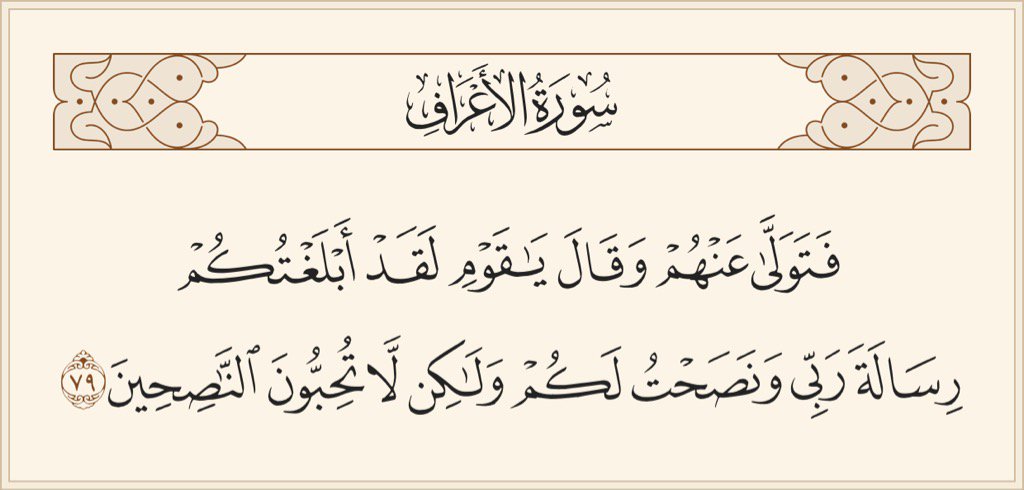 سُورَةُ الأَعْرَافِ
فَتَوَلَّىٰ عَنْهُمْ وَقَالَ يَـٰقَوْمِ لَقَدْ أَبْلَغْتُكُمْ
رِسَالَةَ رَبِّى وَنَصَحْتُ لَكُمْ وَلَـٰكِن لَّا تُحِبُّونَ ٱلنَّـٰصِحِينَ ٧٩